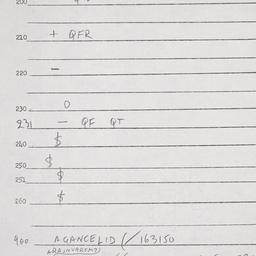 200
210 + QFR
220 —
230 O
231 — QF QT
240 $
250 $
251 $
260 $
900 AGANCELID (/163150